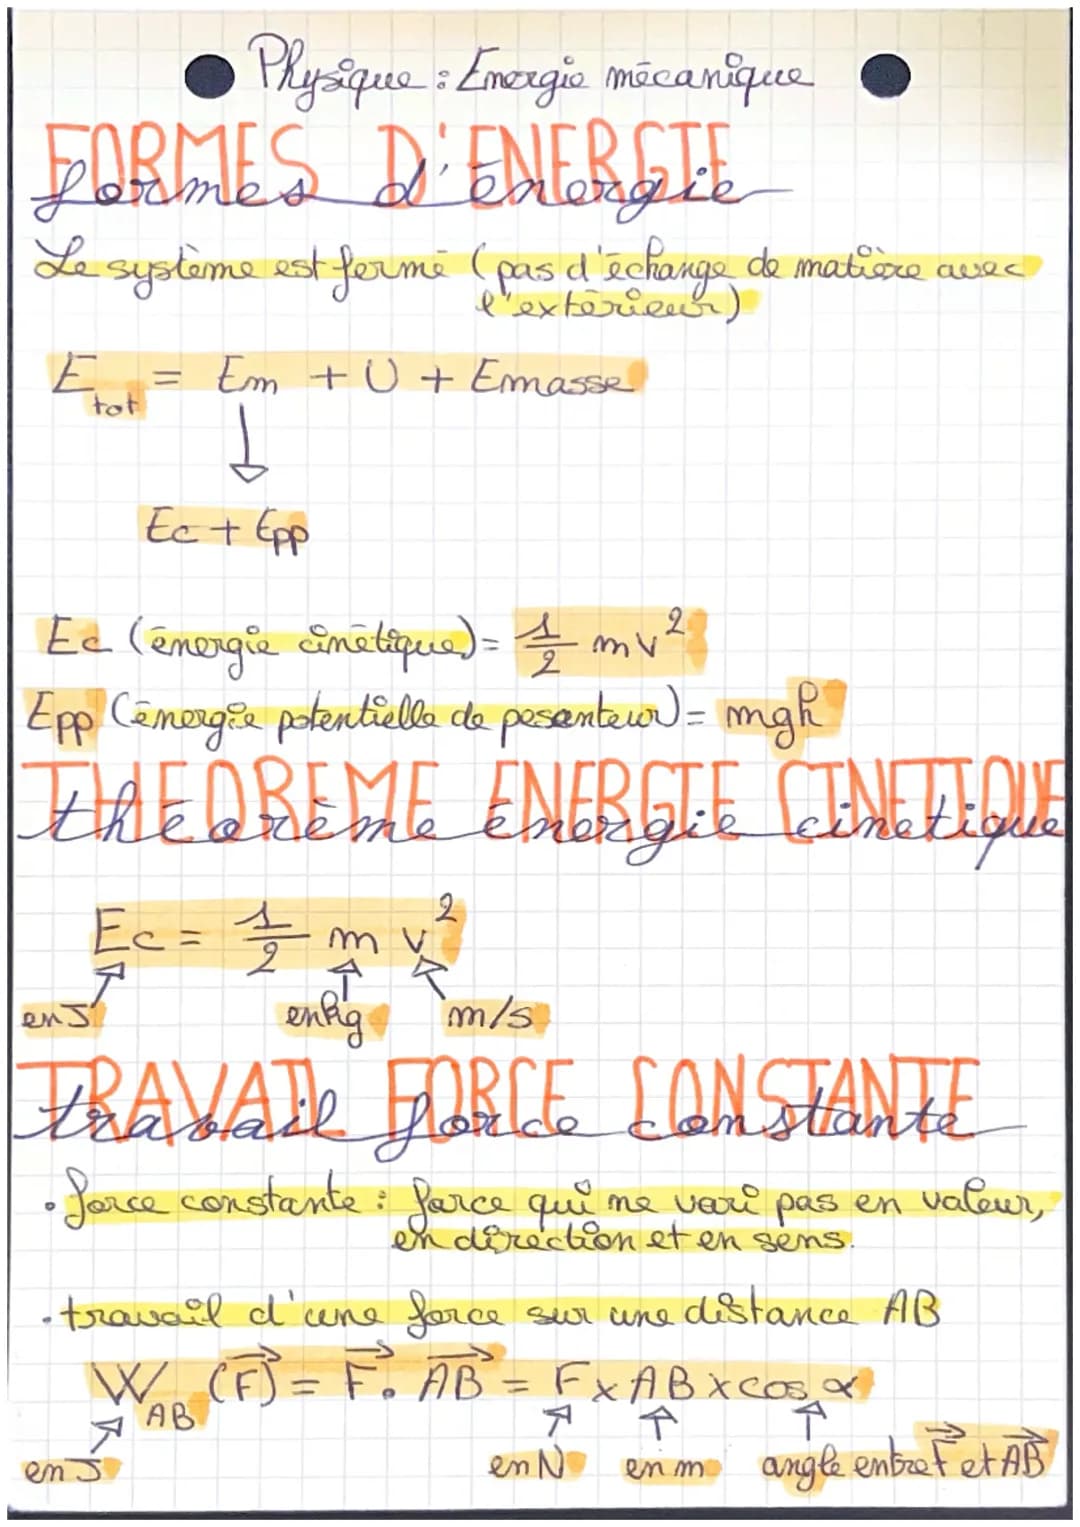 Physique : Energie mécanique
FORMES D'ENERGIE
formes d'énergie
Le système est fermé (pas d'échange de matière avec
l'extérieur)
E tot = Em + U + Emasse
Ec + Epp
Ec (énergie cinétique) = 1/2 mv²
Epp (énergie potentielle de pesanteur) = mgh
THEOREME ENERGIE CINETIQUE
théorème énergie cinétique
Ec = 1/2 m v²
en J en kg m/s
TRAVAIL FORCE CONSTANTE
travail force constante
• force constante : force qui ne vari pas en valeur,
en direction et en sens.
• travail d'une force sur une distance AB
W AB (F⃗) = F⃗ . A⃗B⃗ = F x AB x cos α
en J en N en m angle entre F⃗ et A⃗B⃗